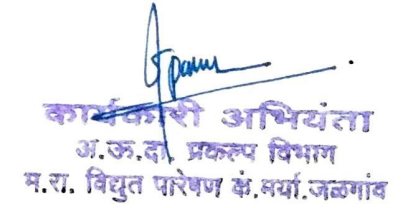 कार्यकारी अभियंता
अ.ऊ.दा. प्रकल्प विभाग
म.रा. विद्युत पारेषण कं.मर्या.जळगांव